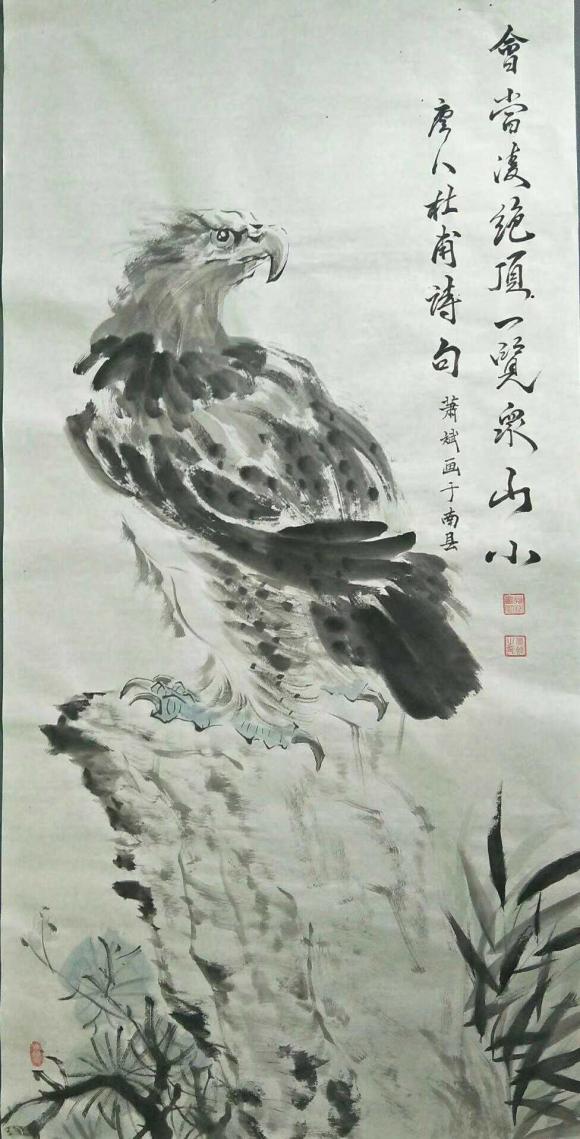 會當凌絕頂一覽眾山小
唐人杜甫詩句
蕭斌画于南县